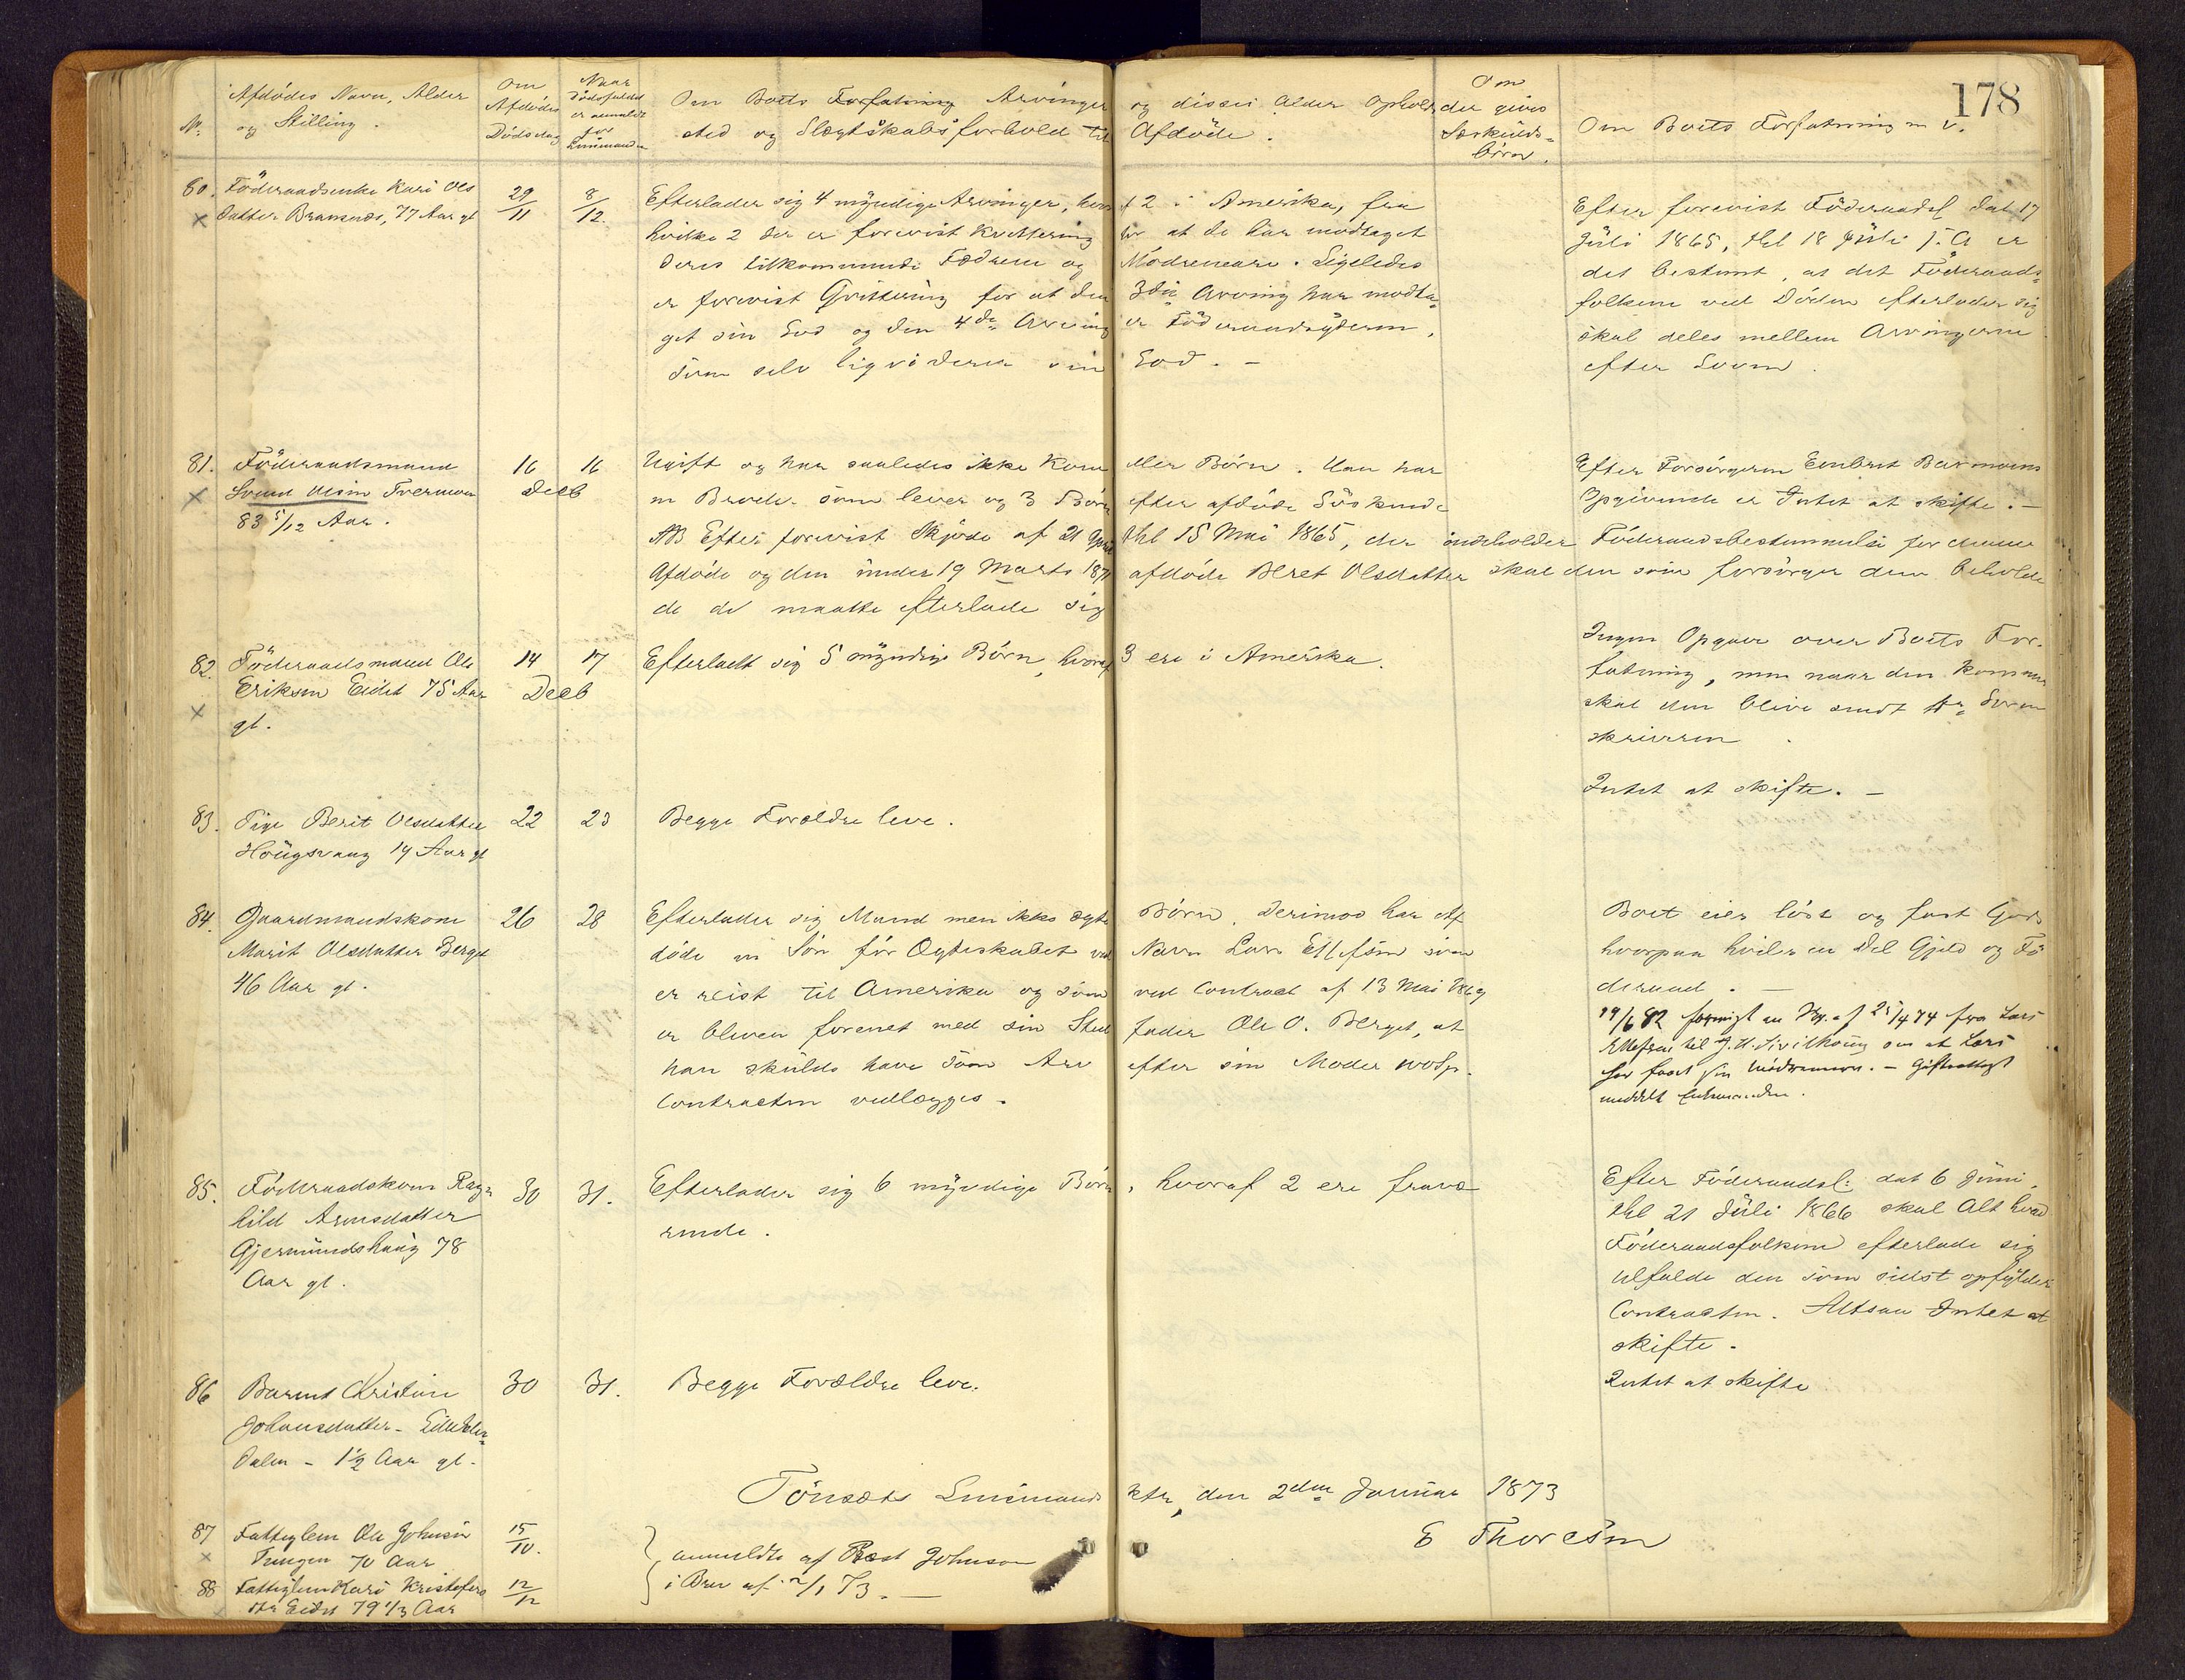 178
No. Afdödes Navn, Alder og Stilling.
Om Afdødes Dødsdag
Naar Dødsfaldet er anmeldt for Lensmanden
Om Boets Forfatning Arvinger og disses Alder Opholds
sted og Slægtskabsforhold til Afdöde.
Om der gives Særkuldsbörn.
Om Boets Forfatning m v.
80. Föderaadsenke Kari Ols
datter Bramsnæs, 77 Aar gl
29/11
8/12.
Efterlader sig 4 myndige Arvinger, hvoraf 2 i Amerika, fra
hvilke 2 der er forevist Kvittering for at de har modtaget
deres tilkommende Fædrene og Mödrenearv. Ligeledes
er forevist Qvittering for at den 3die Arving har modta-
get sin Lod og den 4de Arving er Föderaadsyderen,
som selv liqviderer sin Lod. -
Efter forevist Föderaadsc dat 17
Juli 1865, thl 18 Juli s. A er
det bestemt, at det Föderaads-
folkene ved Döden efterlader sig
skal deles mellem Arvingerne
efter Loven.
81. Föderaadsmand
Svend Olsen Tvermoen
83 5/12 Aar.
16 16
Decb
Ugift og har saaledes ikke Kone eller Börn. Han har
en Broder som lever og 3 Börn efter afdöde Söskende
NB Efter forevist Skjöde af 21 April thl 15 Mai 1865, der indeholder Föderaadsbestemmelse for denne
Afdöde og den under 19 Marts 187 afdöde Beret Olsdatter skal den som forsörger dem beholde
de de maatte efterlade sig
Efter Forsörgeren Embret Bermoens
Opgivende er Intet at skifte. -
82. Föderaadsmand Ole
Eriksen Eidet 75 Aar
gl.
14 17
Decb
Efterladt sig 5 myndige Börn, hvoraf 3 ere i Amerika.
Ingen Opgave over Boets For-
fatning, men naar den kommer
skal den blive sendt Hr. Soren
skriveren.
83. Pige Berit Olsdatter
Hougsvang 14 Aar gl
22 23
Begge Forældre leve.
Intet at skifte. -
84. Gaardmandskone
Marit Olsdatter Berget
46 Aar gl.
26 28
Efterlader sig Mand men ikke ægte Börn. Derimod har Af
döde en Sön för Ægteskabet ved Navn Lars Ellefsen som
er reist til Amerika og som ved Contract af 13 Mai 1869
er bleven forenet med sin Stedfader Ole O. Berget, at
han skulde have som Arv efter sin Moder
Contracten vedlægges.
Boet eier löst og fast Gods
hvorpaa hviler en Del Gjeld og Fö
deraad. -
19/6 82 foreviist en Kv. af 25/4 74 fra Lars
Ellefsen til om at Lars
har faaet sin Mödrenearv. -
meddelt Enkemanden.
85. Föderaadskone Ragn-
hild Arnesdatter
Gjermundshaug 78
Aar gl.
30 31.
Efterlader sig 6 myndige Börn, hvoraf 2 ere fravæ
rende.
Efter Föderaadsc. dat 6 Juni,
thl 21 Juli 1866 skal Alt hvad
Föderaadsfolkene efterlade sig
tilfalde den som sidst opfylder
Contracten. Altsaa Intet at
skifte.
86 Barnet Kristine
Johansdatter -
dalen - 1½ Aar gl.
30 31.
Begge Forældre leve.
Intet at skifte
Tönsets Lensmands ktr, den 2den Januar 1873
E Thoresen
87 Fattiglem Ole Johnsen
Tangen 70 Aar
15/10.
88 Fattiglem Kari Kristofers
dtr Eidet 79 1/3 Aar
12/12
anmeldte af Johnson
i Brev af 2/1 73. -